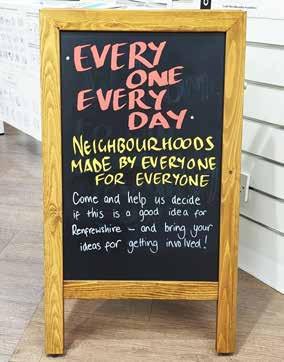 EVERY
ONE
EVERY
DAY
NEIGHBOURHOODS
MADE BY EVERYONE
FOR EVERYONE
Come and help us decide
if this is a good idea for
Renfrewshire – and bring your
ideas for getting involved!